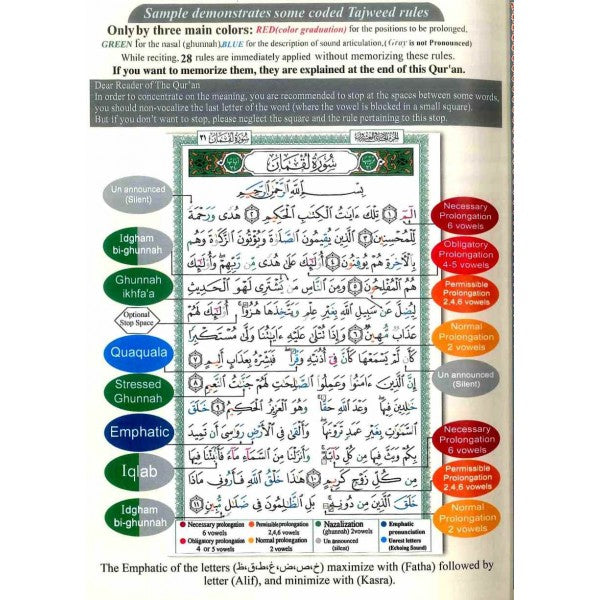 Sample demonstrates some coded Tajweed rules
Only by three main colors: RED(color graduation) for the positions to be prolonged,
GREEN for the nasal (ghunnah),BLUE for the description of sound articulation,(Gray is not Pronounced)
While reciting, 28 rules are immediately applied without memorizing these rules.
If you want to memorize them, they are explained at the end of this Qur'an.
Dear Reader of The Qur'an
In order to concentrate on the meaning, you are recommended to stop at the spaces between some words,
you should non-vocalize the last letter of the word (where the vowel is blocked in a small square).
But if you don't want to stop, please neglect the square and the rule pertaining to this stop.
الجزء الحادي والعشرون
سُورَةُ لُقْمَان ٣١
سُورَةُ لُقْمَان
بِسْمِ اللَّهِ الرَّحْمَٰنِ الرَّحِيمِ
الٓمٓ ١ تِلْكَ ءَايَٰتُ الْكِتَٰبِ الْحَكِيمِ ٢ هُدًى وَرَحْمَةً
لِّلْمُحْسِنِينَ ٣ الَّذِينَ يُقِيمُونَ الصَّلَوٰةَ وَيُؤْتُونَ الزَّكَوٰةَ وَهُم
بِالْءَاخِرَةِ هُمْ يُوقِنُونَ ٤ أُو۟لَٰٓئِكَ عَلَىٰ هُدًى مِّن رَّبِّهِمْ وَأُو۟لَٰٓئِكَ
هُمُ الْمُفْلِحُونَ ٥ وَمِنَ النَّاسِ مَن يَشْتَرِى لَهْوَ الْحَدِيثِ
لِيُضِلَّ عَن سَبِيلِ اللَّهِ بِغَيْرِ عِلْمٍ وَيَتَّخِذَهَا هُزُوًا أُو۟لَٰٓئِكَ لَهُمْ
عَذَابٌ مُّهِينٌ ٦ وَإِذَا تُتْلَىٰ عَلَيْهِ ءَايَٰتُنَا وَلَّىٰ مُسْتَكْبِرًا
كَأَن لَّمْ يَسْمَعْهَا كَأَنَّ فِىٓ أُذُنَيْهِ وَقْرًا فَبَشِّرْهُ بِعَذَابٍ أَلِيمٍ ٧
إِنَّ الَّذِينَ ءَامَنُوا۟ وَعَمِلُوا۟ الصَّٰلِحَٰتِ لَهُمْ جَنَّٰتُ النَّعِيمِ ٨
خَٰلِدِينَ فِيهَا وَعْدَ اللَّهِ حَقًّا وَهُوَ الْعَزِيزُ الْحَكِيمُ ٩ خَلَقَ
السَّمَٰوَٰتِ بِغَيْرِ عَمَدٍ تَرَوْنَهَا وَأَلْقَىٰ فِى الْأَرْضِ رَوَٰسِىَ أَن تَمِيدَ
بِكُمْ وَبَثَّ فِيهَا مِن كُلِّ دَآبَّةٍ وَأَنزَلْنَا مِنَ السَّمَآءِ مَآءً فَأَنۢبَتْنَا فِيهَا
مِن كُلِّ زَوْجٍ كَرِيمٍ ١٠ هَٰذَا خَلْقُ اللَّهِ فَأَرُونِى مَاذَا
خَلَقَ الَّذِينَ مِن دُونِهِ بَلِ الظَّٰلِمُونَ فِى ضَلَٰلٍ مُّبِينٍ ١١
Un announced
(Silent)
Idgham
bi-ghunnah
Ghunnah
ikhfa'a
Optional
Stop Space
Quaquala
Stressed
Ghunnah
Emphatic
Iqlab
Idgham
bi-ghunnah
Necessary
Prolongation
6 vowels
Obligatory
Prolongation
4-5 vowels
Permissible
Prolongation
2,4,6 vowels
Normal
Prolongation
2 vowels
Un announced
(Silent)
Necessary
Prolongation
6 vowels
Permissible
Prolongation
2,4,6 vowels
Normal
Prolongation
2 vowels
Necessary prolongation
6 vowels
Permissible prolongation
2,4,6 vowels
Nazalization
(ghunnah) 2vowels
Emphatic
pronunciation
Obligatory prolongation
4 or 5 vowels
Normal prolongation
2 vowels
Un announced
(silent)
Unrest letters
(Echoing Sound)
The Emphatic of the letters (خ،ص،ض،غ،ط،ق،ظ) maximize with (Fatha) followed by
letter (Alif), and minimize with (Kasra).